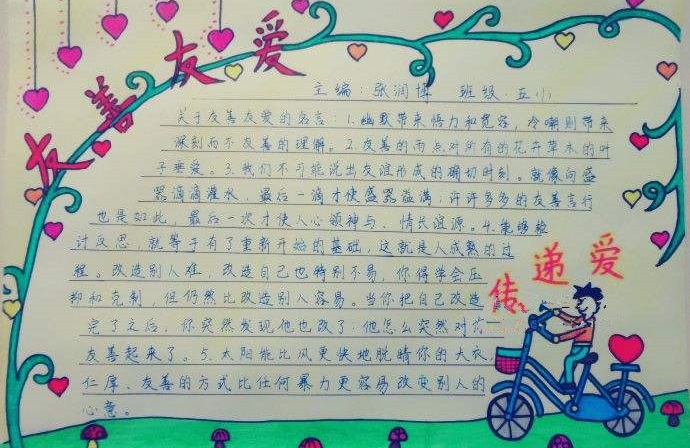 友善友爱
主编：张润博 班级：五小
关于友善友爱的名言：1.幽默带来悟力和宽容，冷嘲则带来
深刻而不友善的理解。2.友善的雨点对所有的花卉草木的叶
子垂爱。3.我们不可能说出友谊形成的确切时刻。就像向盛
器滴滴灌水，最后一滴才使盛器溢满；许许多多的友善言行
也是如此，最后一次才使人心领神与、情长谊源。4.能够检
讨反思，就等于有了重新开始的基础，这就是人成熟的过
程。改造别人难，改造自己也特别不易，你得学会压
抑和克制，但仍然比改造别人容易。当你把自己改造
完了之后，你突然发现他也改了：他怎么突然对你一
友善起来了。5.太阳能比风更快地脱晴你的大衣，
仁厚、友善的方式比任何暴力更容易改变别人的
心意。
传递爱